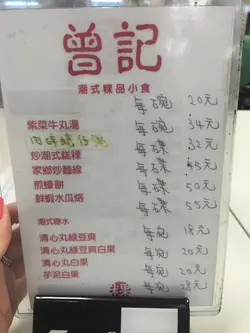 曾記
潮式粿品小食
每碗 20元
紫菜牛丸湯 每碗 34元
每碟 32元
炒潮式糕粿 每碟 45元
家鄉炒麵線 每碟 50元
煎蠔餅 每碟 55元
鮮蝦水瓜烙
潮式糖水
清心丸綠豆爽 每碗 18元
清心丸綠豆爽白果 每碗 20元
清心丸白果 每碗 20元
芋泥白果 每碗 28元
粿